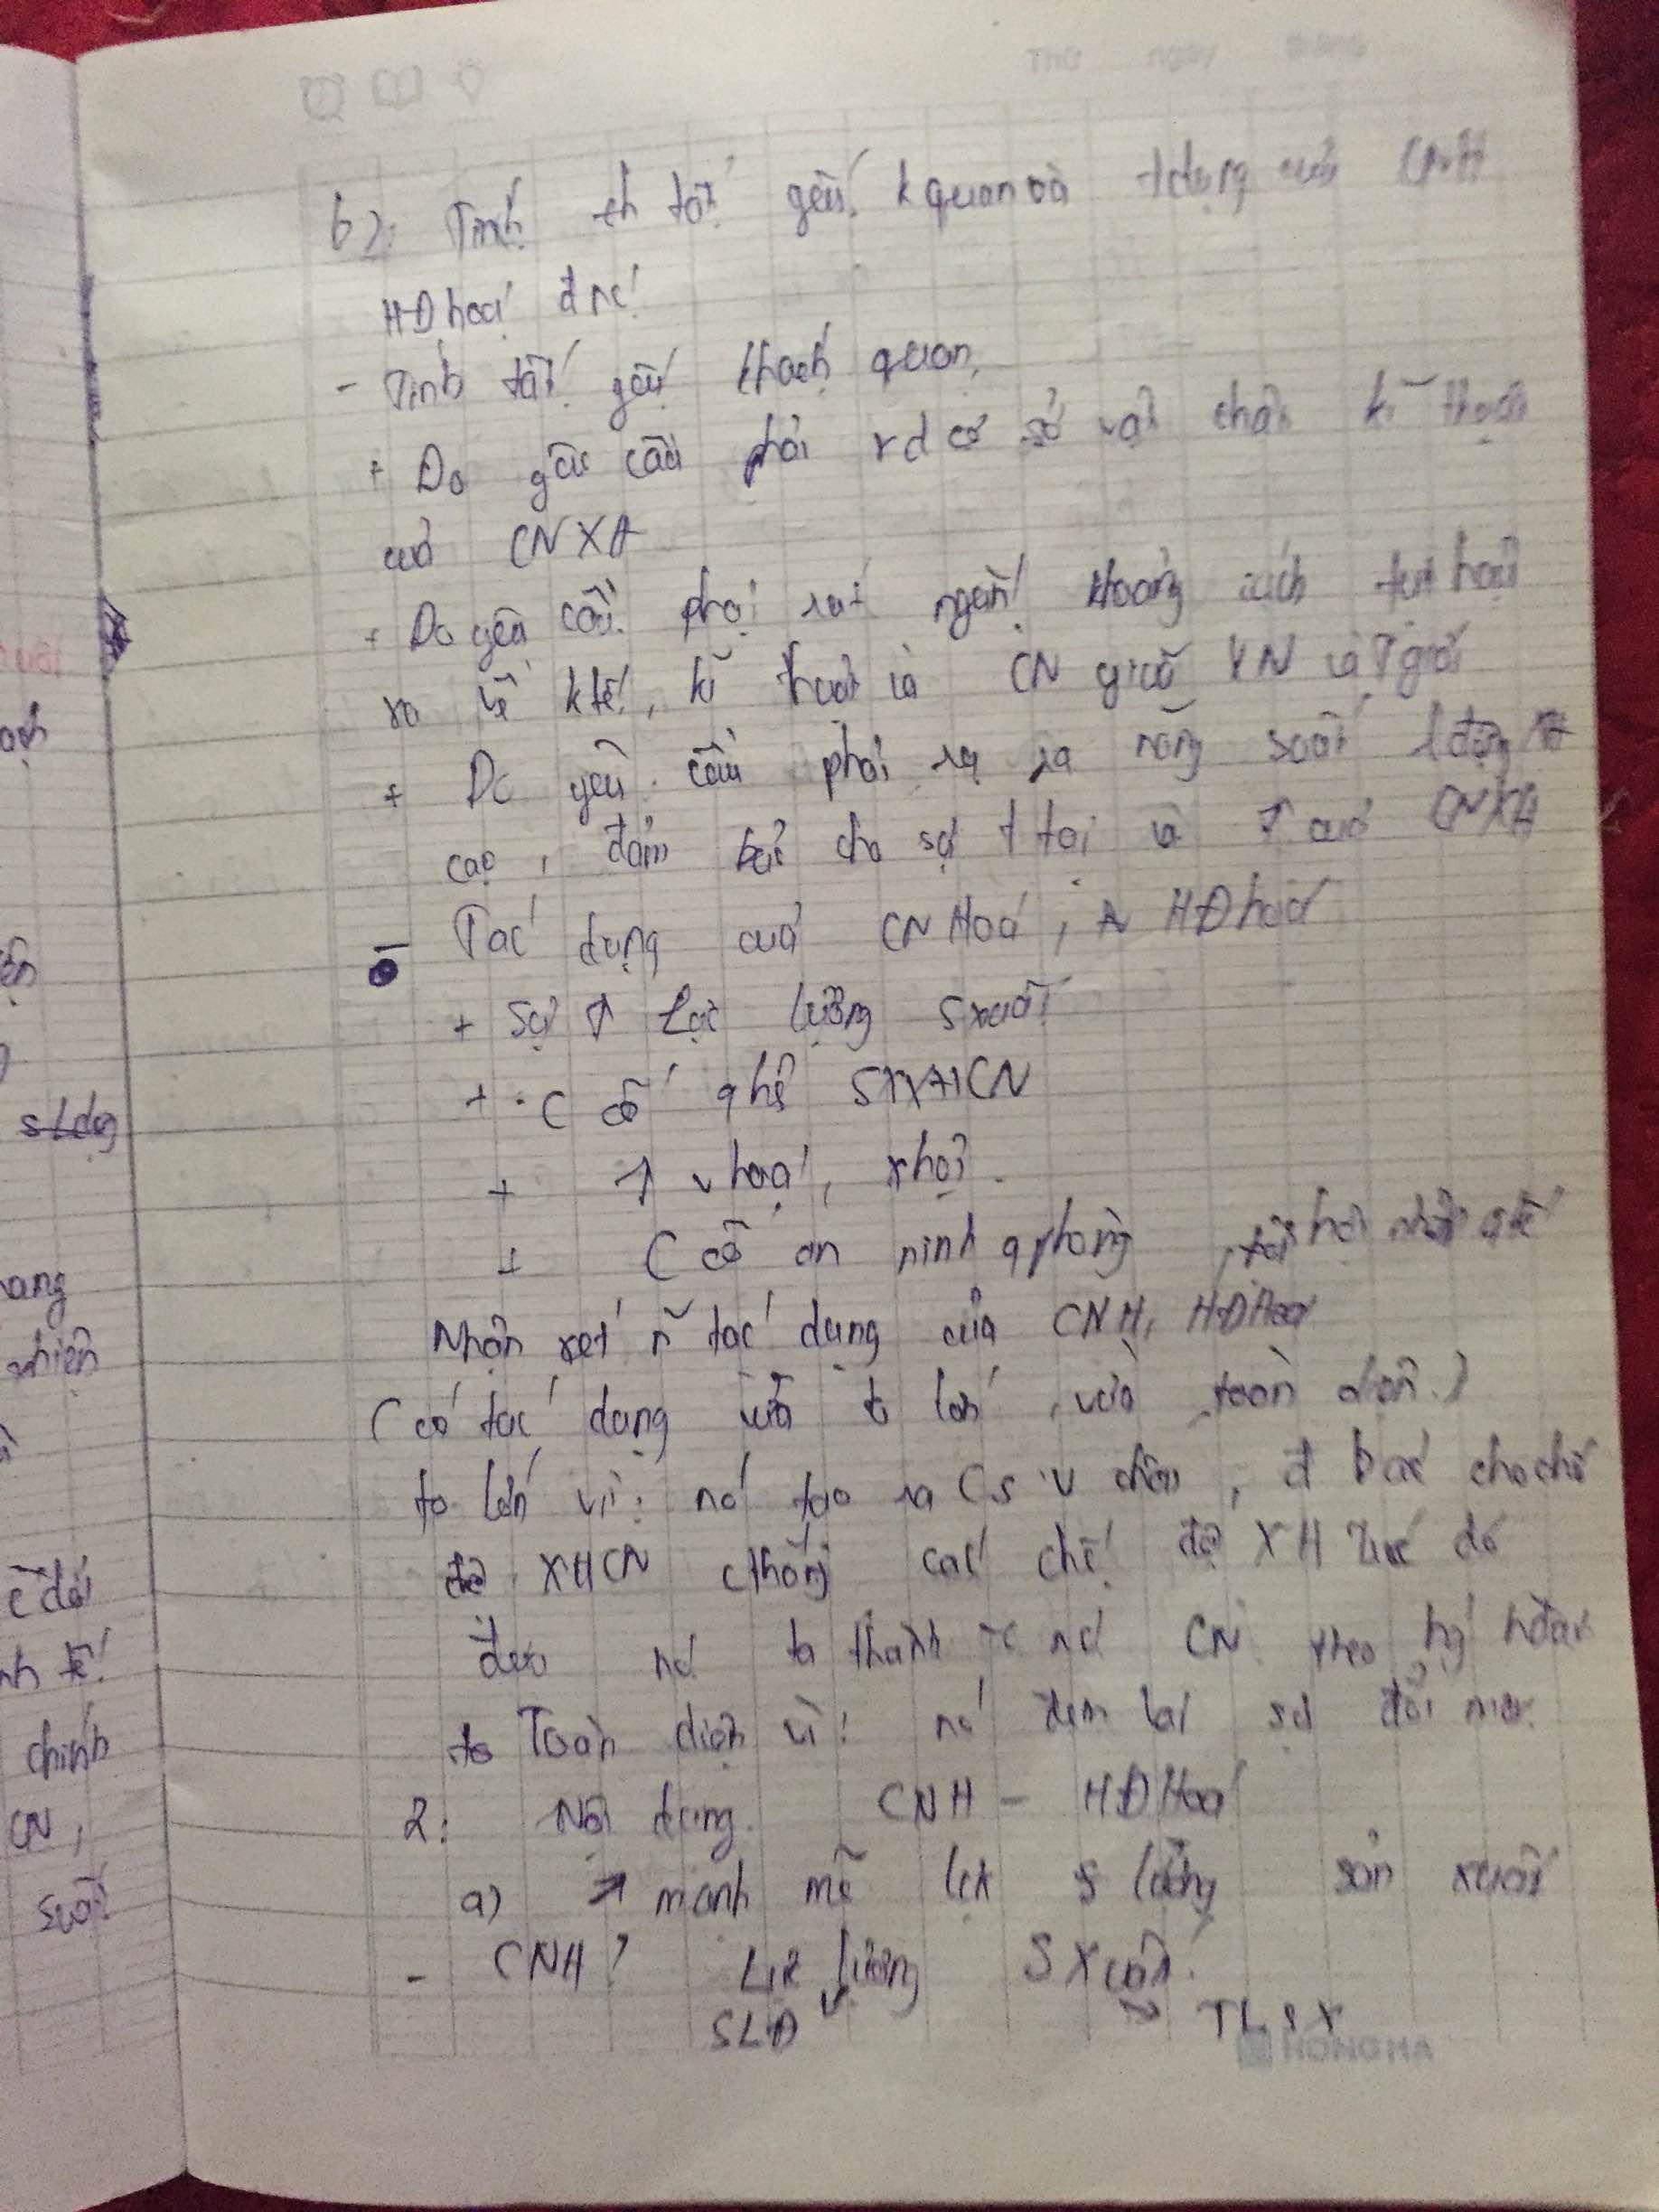 b): Tính tất yếu k quan và t dụng của CNH
HĐ hoá đ nc
- Tính tất yếu khách quan
+ Do yêu cầu phải xd cơ sở vật chất kĩ thuật
của CNXH
+ Do yêu cầu phải rút ngắn khoảng cách tụt hậu
xa về ktế, kĩ thuật và CN giữa VN và T giới
+ Do yêu cầu phải ra năng suất l động
cao, đảm bảo cho sự t tại và ↑ của CNXH
- Tác dụng của CN Hoá, HĐ hoá
+ Sự ↑ Lực lượng Sxuất
+ C cố q hệ SXXHCN
+ ↑ v hoá, x hội.
+ C cố an ninh q phòng, hội nhập q tế
Nhận xét tác dụng của CNH, HĐ Hoá
(có tác dụng vừa to lớn, vừa toàn diện.)
to lớn vì: nó tạo ra Cs v chất, đ bảo cho chế
độ XHCN c thắng các chế độ XH trước đó
đưa nc ta thành nc CN theo hg hđại
Toàn diện vì: nó đem lại sự đổi mới
2: Nội dung CNH - HĐ Hoá
a) ↑ mạnh mẽ lực lượng sản xuất
- CNH? Lực lượng SXuất
SLĐ TLSX
HONG HA
sLdg
ang
nhiên
c đối
nh tế
chính
CN,
suất